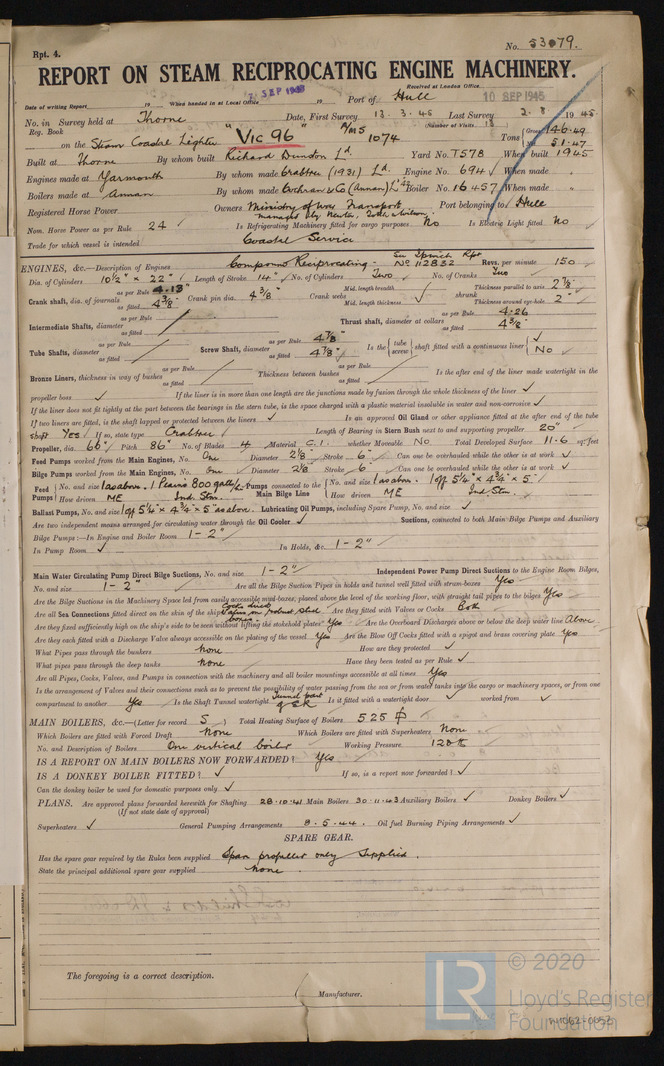 Rpt. 4. No. 53079.
REPORT ON STEAM RECIPROCATING ENGINE MACHINERY.
Received at London Office
Date of writing Report 19 When handed in at Local Office 7 SEP 1945 19 Port of Hull 10 SEP 1945
No. in Survey held at Thorne Date, First Survey 13. 3. 45 Last Survey 2. 8. 1945
Reg. Book (Number of Visits
on the Steam Coastal Lighter "VIC 96" 1074 Tons Gross 146.49
51.47
Built at Thorne By whom built Richard Dunston Ld. Yard No. T578 When built 1945
Engines made at Yarmouth By whom made Crabtree (1931) Ld. Engine No. 694 When made "
Boilers made at Annan By whom made Cochran & Co (Annan) Ld. Boiler No. 16457 When made "
Registered Horse Power Owners Ministry of War Transport Port belonging to Hull
managed by
Nom. Horse Power as per Rule 24 Is Refrigerating Machinery fitted for cargo purposes No Is Electric Light fitted No
Trade for which vessel is intended Coastal Service
See Ipswich Rpt
ENGINES, &c.—Description of Engines Compound Reciprocating. No 112832 Revs. per minute 150
Dia. of Cylinders 10½" × 22" Length of Stroke 14" No. of Cylinders Two No. of Cranks Two
Crank shaft, dia. of journals as per Rule 4.13" as fitted 4⅜" Crank pin dia. 4⅜" Crank webs Mid. length breadth Mid. length thickness ✓ shrunk Thickness parallel to axis 2⅞" Thickness around eye-hole 2"
Intermediate Shafts, diameter as per Rule as fitted Thrust shaft, diameter at collars as per Rule 4.26 as fitted 4⅜"
Tube Shafts, diameter as per Rule as fitted Screw Shaft, diameter as per Rule 4⅞" as fitted 4⅞" Is the { tube screw } shaft fitted with a continuous liner { ✓ No
Bronze Liners, thickness in way of bushes as per Rule as fitted Thickness between bushes as per Rule as fitted Is the after end of the liner made watertight in the
propeller boss ✓ If the liner is in more than one length are the junctions made by fusion through the whole thickness of the liner ✓
If the liner does not fit tightly at the part between the bearings in the stern tube, is the space charged with a plastic material insoluble in water and non-corrosive ✓
If two liners are fitted, is the shaft lapped or protected between the liners ✓ Is an approved Oil Gland or other appliance fitted at the after end of the tube
shaft Yes If so, state type Crabtree Length of Bearing in Stern Bush next to and supporting propeller 20"
Propeller, dia. 66" Pitch 86" No. of Blades 4 Material C.I. whether Moveable No Total Developed Surface 11.6 sq. feet
Feed Pumps worked from the Main Engines, No. One Diameter 2⅛ Stroke 6" Can one be overhauled while the other is at work ✓
Bilge Pumps worked from the Main Engines, No. One Diameter 2⅛ Stroke 6" Can one be overhauled while the other is at work ✓
Feed Pumps { No. and size 1 as above. 1 Pearns 800 galls/hr How driven ME Ind. Stm. Pumps connected to the Main Bilge Line { No. and size 1 as above. 1 off 5¼" × 4¾" × 5" How driven ME Ind. Stm.
Ballast Pumps, No. and size 1 off 5¼" × 4¾" × 5" as above. Lubricating Oil Pumps, including Spare Pump, No. and size ✓
Are two independent means arranged for circulating water through the Oil Cooler ✓ Suctions, connected to both Main Bilge Pumps and Auxiliary
Bilge Pumps:—In Engine and Boiler Room 1 - 2"
In Pump Room ✓ In Holds, &c. 1 - 2"
Main Water Circulating Pump Direct Bilge Suctions, No. and size 1 - 2" Independent Power Pump Direct Suctions to the Engine Room Bilges,
No. and size 1 - 2" Are all the Bilge Suction Pipes in holds and tunnel well fitted with strum-boxes Yes
Are the Bilge Suctions in the Machinery Space led from easily accessible mud-boxes, placed above the level of the working floor, with straight tail pipes to the bilges Yes
Are all Sea Connections fitted direct on the skin of the ship Are they fitted with Valves or Cocks Both
Are they fixed sufficiently high on the ship's side to be seen without lifting the stokehold plates Yes Are the Overboard Discharges above or below the deep water line Above
Are they each fitted with a Discharge Valve always accessible on the plating of the vessel Yes Are the Blow Off Cocks fitted with a spigot and brass covering plate Yes
What Pipes pass through the bunkers None How are they protected ✓
What pipes pass through the deep tanks None Have they been tested as per Rule ✓
Are all Pipes, Cocks, Valves, and Pumps in connection with the machinery and all boiler mountings accessible at all times Yes
Is the arrangement of Valves and their connections such as to prevent the possibility of water passing from the sea or from water tanks into the cargo or machinery spaces, or from one
compartment to another Yes Is the Shaft Tunnel watertight Tunnel part of ER Is it fitted with a watertight door ✓ worked from ✓
MAIN BOILERS, &c.—(Letter for record S) Total Heating Surface of Boilers 525
Which Boilers are fitted with Forced Draft None Which Boilers are fitted with Superheaters None
No. and Description of Boilers One vertical boiler Working Pressure 120 lb
IS A REPORT ON MAIN BOILERS NOW FORWARDED? Yes
IS A DONKEY BOILER FITTED? ✓ If so, is a report now forwarded? ✓
Can the donkey boiler be used for domestic purposes only ✓
PLANS. Are approved plans forwarded herewith for Shafting 28.10.41 Main Boilers 30.11.43 Auxiliary Boilers ✓ Donkey Boilers ✓
(If not state date of approval)
Superheaters ✓ General Pumping Arrangements 8.5.44. Oil fuel Burning Piping Arrangements ✓
SPARE GEAR.
Has the spare gear required by the Rules been supplied Spare propeller only supplied.
State the principal additional spare gear supplied None
The foregoing is a correct description.
Manufacturer.
© 2020
LR Lloyd's Register
Foundation